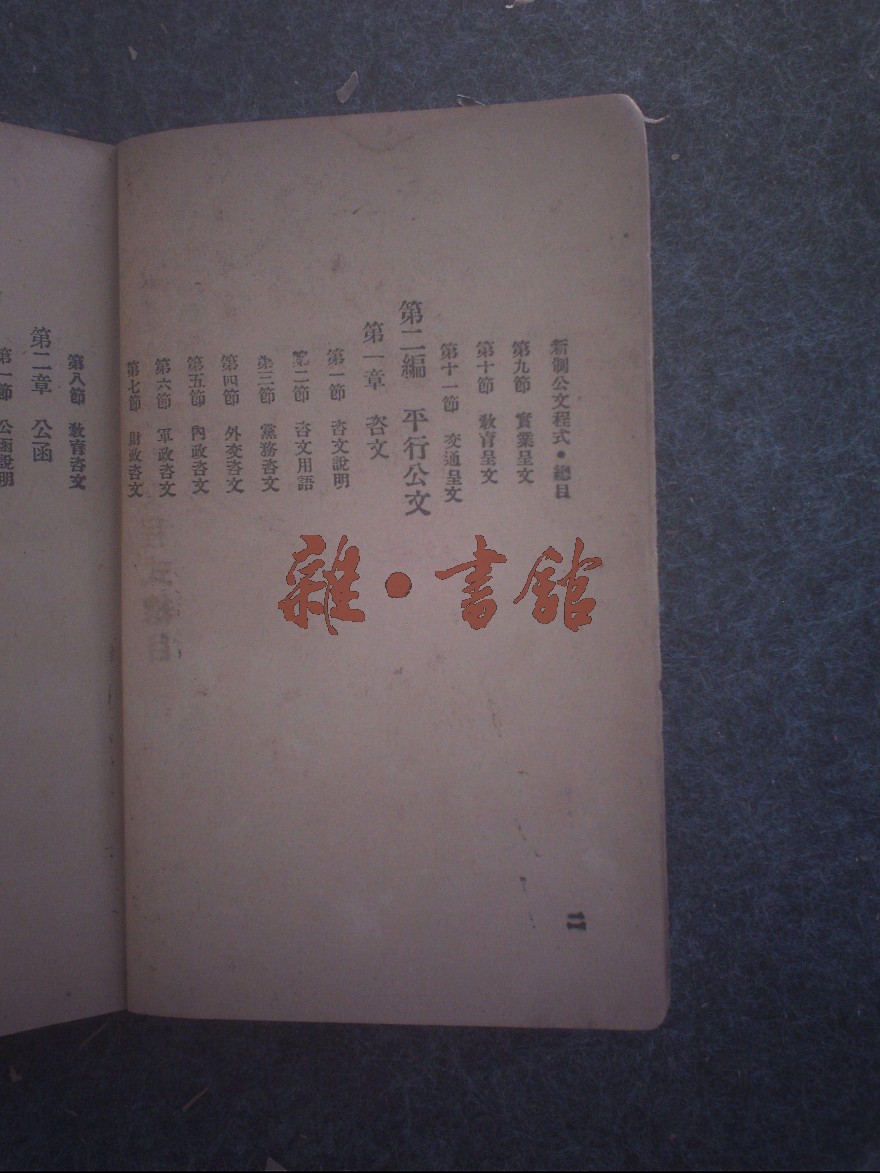 新制公文程式•總目
第九節 實業呈文
第十節 教育呈文
第十一節 交通呈文
第二編 平行公文
第一章 咨文
第一節 咨文說明
第二節 咨文用語
第三節 黨務咨文
第四節 外交咨文
第五節 內政咨文
第六節 軍政咨文
第七節 財政咨文
二
第八節 教育咨文
第二章 公函
第一節 公函說明
雜•書館